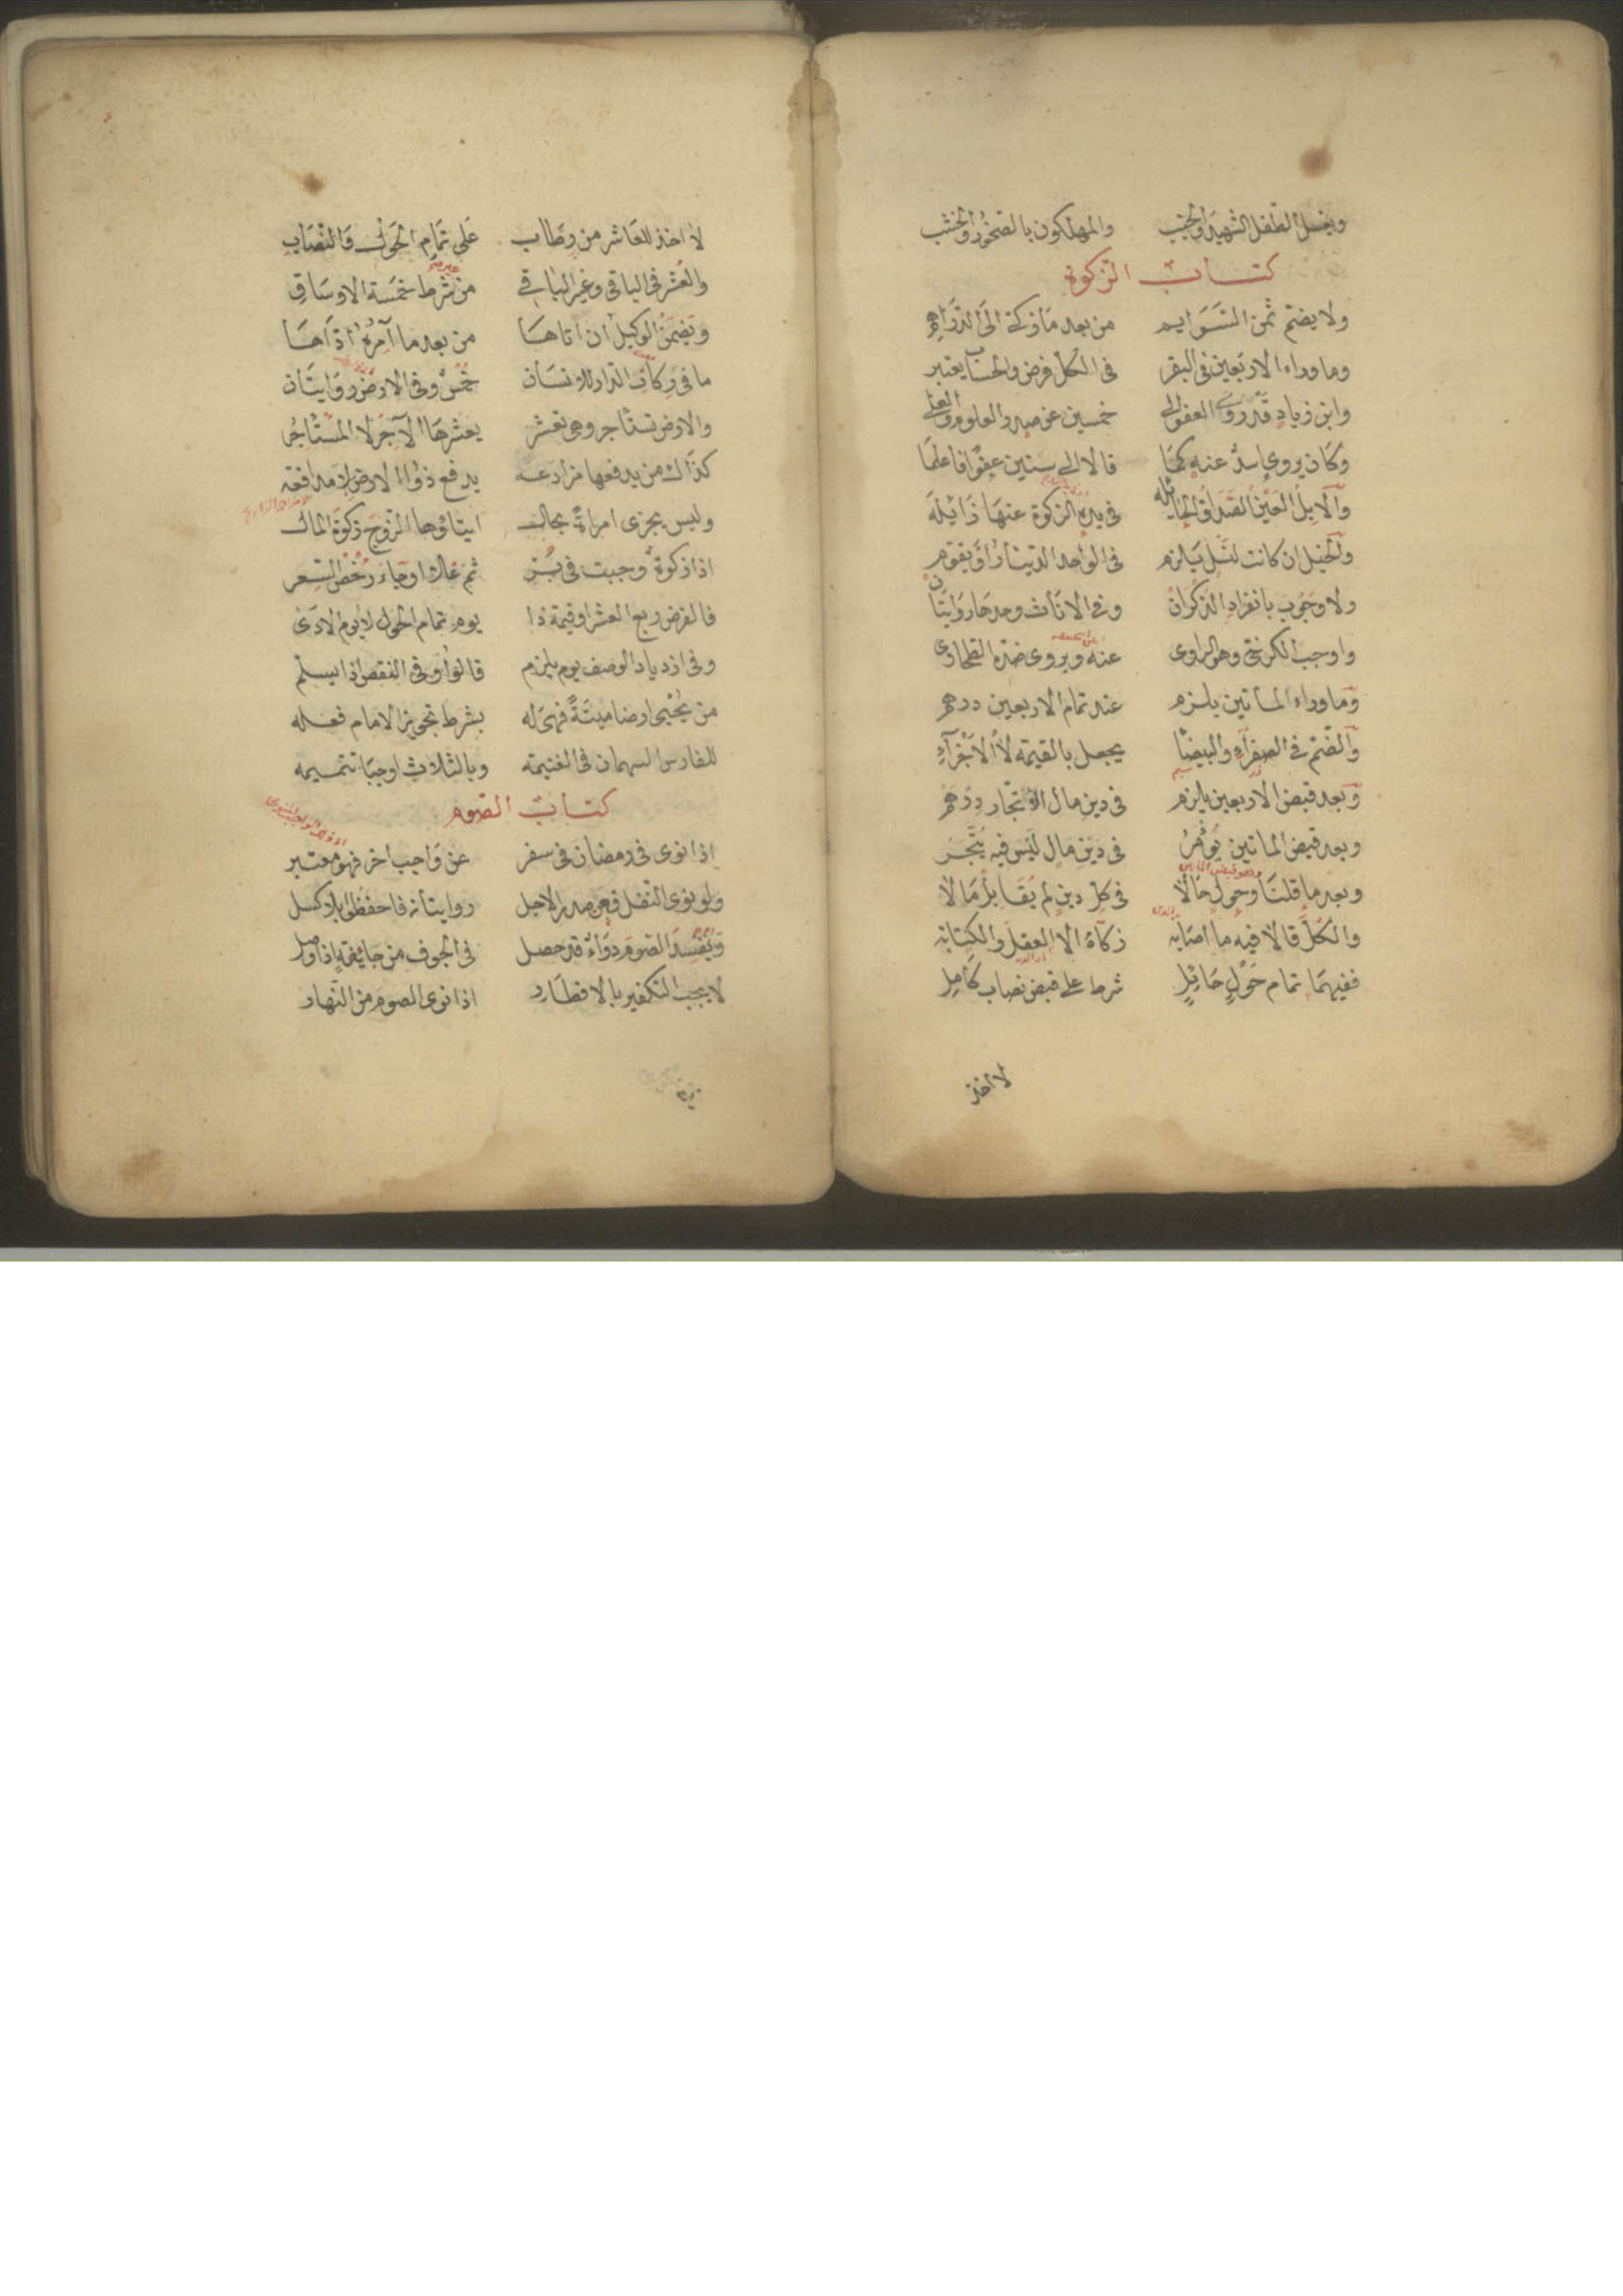 ويغسل الطفل الشهيد والجنب والمهلكون بالصخور والخشب
كتاب الزكوة
ولا يضم ثمن السوايم من بعد ما زكى الى الدراهم
وما وراء الاربعين فى البقر فى الكل فرض والحساب يعتبر
وابن زياد قد روى العفو الى خمسين عن صدر العلوم والعلى
وكان يروى اسد عنه كما قالا الى ستين عفوا فاعلما
والابل العين الصداق الحائله فى يده الزكوة عنها زائله
والخيل ان كانت لنسل يلزم فى الواحد الدينار او يقوم
ولا وجوب بانفراد الذكران وفى الاناث وحدها روايتان
واوجب الكرخى وهو الراوى عنه ويروى ضده الطحاوى
وما وراء الماتين يلزم عند تمام الاربعين درهم
والضم فى الصفراء والبيضاء يجعل بالقيمة لا الاجزاء
وبعد قبض الاربعين يلزم فى دين مال الاتجار درهم
وبعد قبض الماتين يؤمر فى دين مال ليس فيه يتجر
وبعد ما قلنا وحول حالا فى كل دين لم يقابل مالا
والكل قالا فيه ما اصابه زكاة الا العقل والكتابه
ففيهما تمام حول حائل شرط على قبض نصاب كامل
لا اخذ
لا اخذ للعاشر من رطاب على تمام الحول فالنصاب
والعشر فى الباقى وغير الباقى من شرط خمسة الاوساق
ويضمن الوكيل ان اتاها من بعد ما آمره اداها
ما فى ركاز الدار للانسان خمس وفى الارض روايتان
والارض تستاجر وهى تعشر يعشرها الآجر لا المستاجر
كذاك من يدفعها مزارعه يدفع ذو الارض لا مدافعه
وليس يجزى امراة بحال ايتاؤها الزوج زكوة المال
اذا زكوة وجبت فى بر ثم غلا او جاء رخص السعر
فالفرض ربع العشر او قيمة ذا يوم تمام الحول لا يوم الادى
وفى ازدياد الوصف يوم يلزم قالوا وفى النقص اذا يسلم
من يحيى ارضا ميتة فهى له بشرط تجويز الامام فعله
للفارس السهمان فى الغنيمه وبالثلاث اوجبا تتميمه
كتاب الصوم
اذا نوى فى رمضان فى سفر عن واجب اخر فهو معتبر
ولو نوى النفل فعن صدر الاجل روايتان فاحفظن بلا كسل
ويفسد الصوم دواء قد حصل فى الجوف من جائفة اذا وصل
لا يجب التكفير بالافطار اذا نوى الصوم من النهار